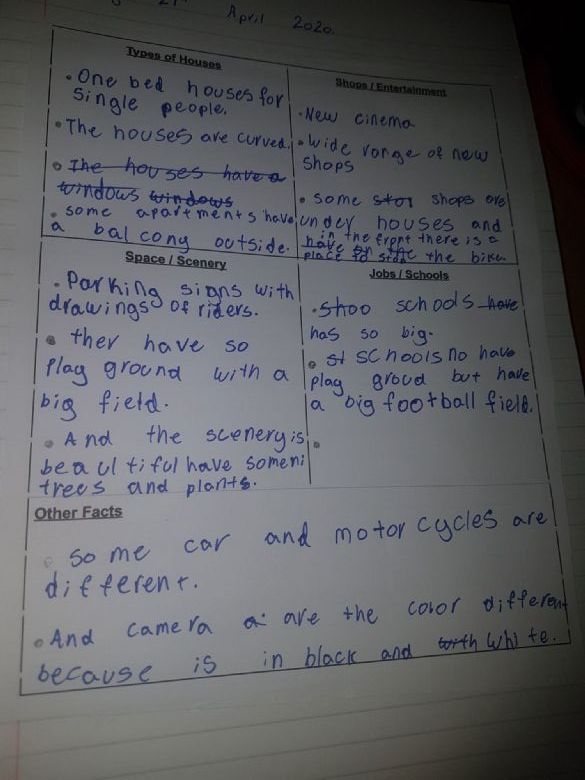 21 April 2020.
Types of Houses
• One bed houses for
single people.
• The houses are curved.
• The houses have a
windows windows
• some apartments have
a balcony outside.
Shops / Entertainment
• New cinema
• wide range of new
shops
• some stor shops are
under houses and
in the front there is a
have
place to the bike.
Space / Scenery
• Parking signs with
drawings of riders.
• ther have so
play ground with a
big field.
• And the scenery is
beautiful have
trees and plants.
Jobs / Schools
• shoo schools have
has so big.
• st schools no have
play groud but have
a big football field.
•
Other Facts
• some car and motorcycles are
different.
• And camera a are the color different
because is in black and with white.